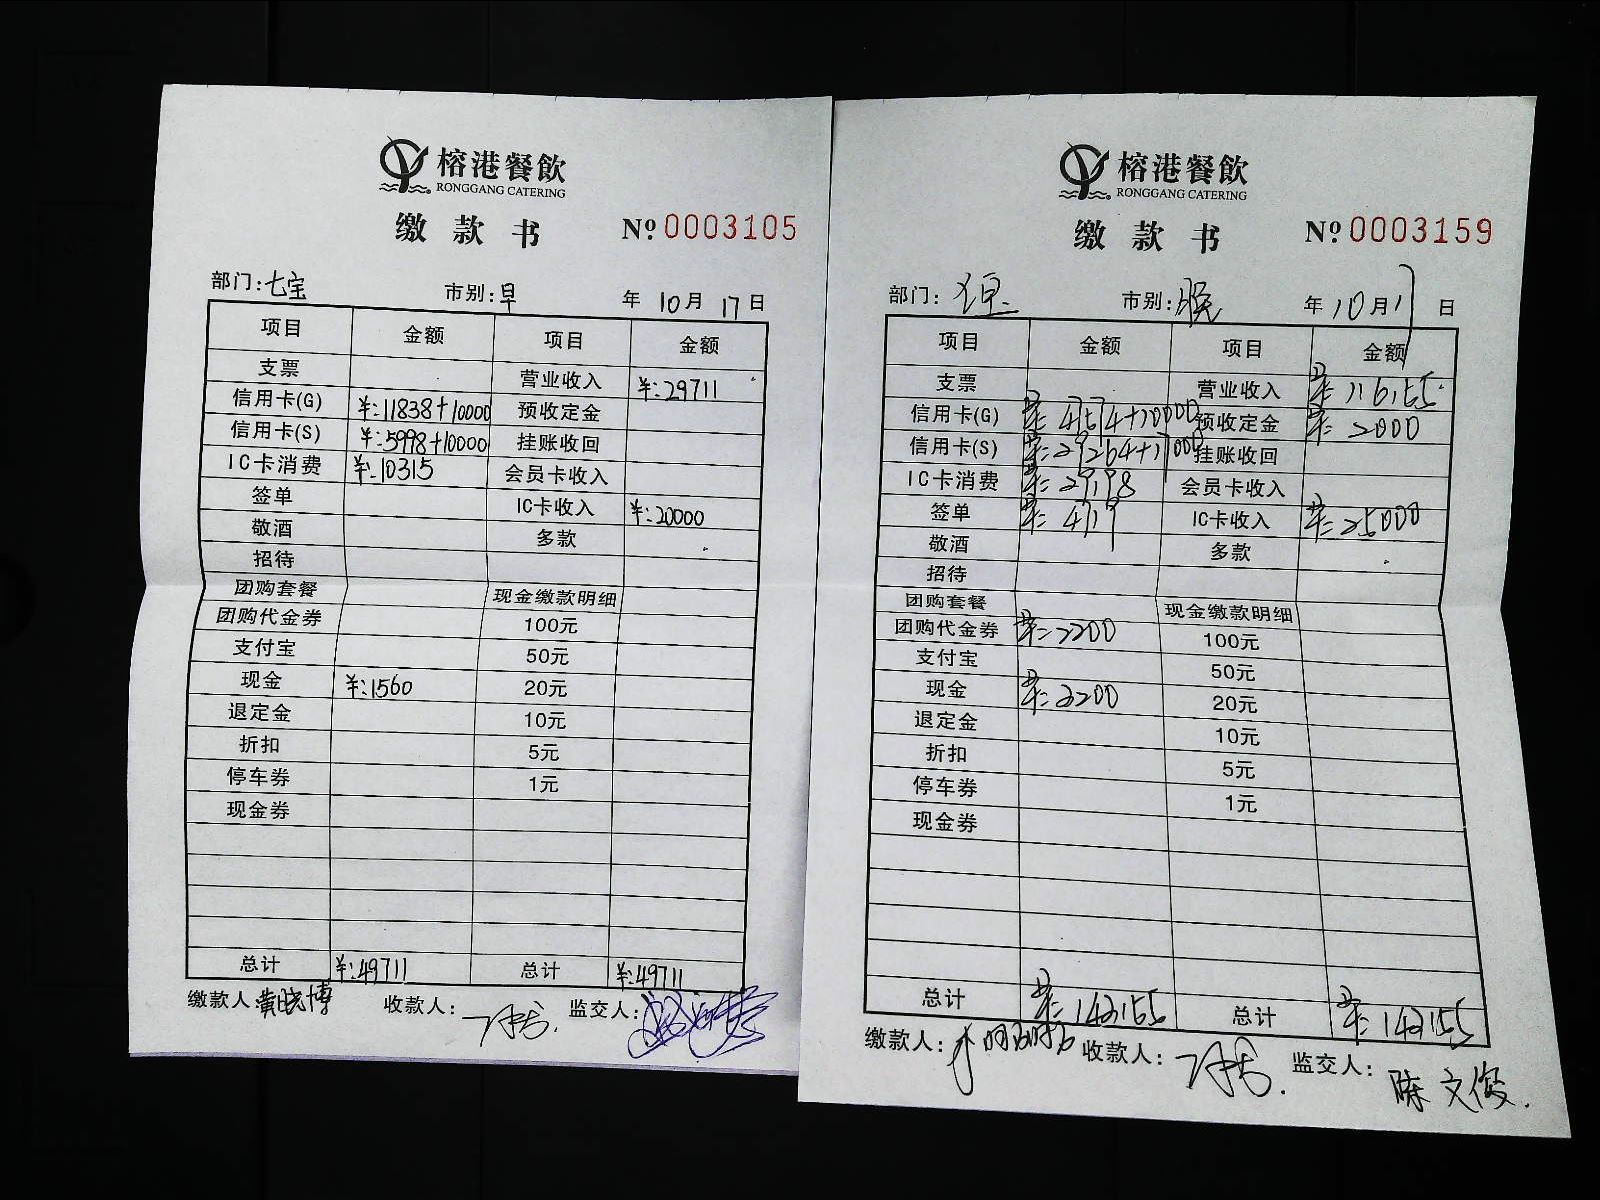 榕港餐飲
RONGGANG CATERING
缴款书 № 0003105
部门:七宝 市别:早 年 10月 17日
项目 金额 项目 金额
支票 营业收入 ¥:29711
信用卡(G) ¥:11838+10000 预收定金
信用卡(S) ¥:5998+10000 挂账收回
IC卡消费 ¥:10315 会员卡收入
签单 IC卡收入 ¥:20000
敬酒 多款
招待
团购套餐 现金缴款明细
团购代金券 100元
支付宝 50元
现金 ¥:1560 20元
退定金 10元
折扣 5元
停车券 1元
现金券
总计 ¥:49711 总计 ¥:49711
缴款人 黄晓博 收款人: 监交人:
榕港餐飲
RONGGANG CATERING
缴款书 № 0003159
部门: 市别:晚 年 10月17日
项目 金额 项目 金额
支票 营业收入 ¥:116155
信用卡(G) 预收定金 ¥:2000
信用卡(S) 挂账收回
IC卡消费 会员卡收入
签单 IC卡收入 ¥:25000
敬酒 多款
招待
团购套餐 现金缴款明细
团购代金券 100元
支付宝 50元
现金 20元
退定金 10元
折扣 5元
停车券 1元
现金券
总计 ¥:143155 总计 ¥:143155
缴款人: 收款人: 监交人: 陈文俊.